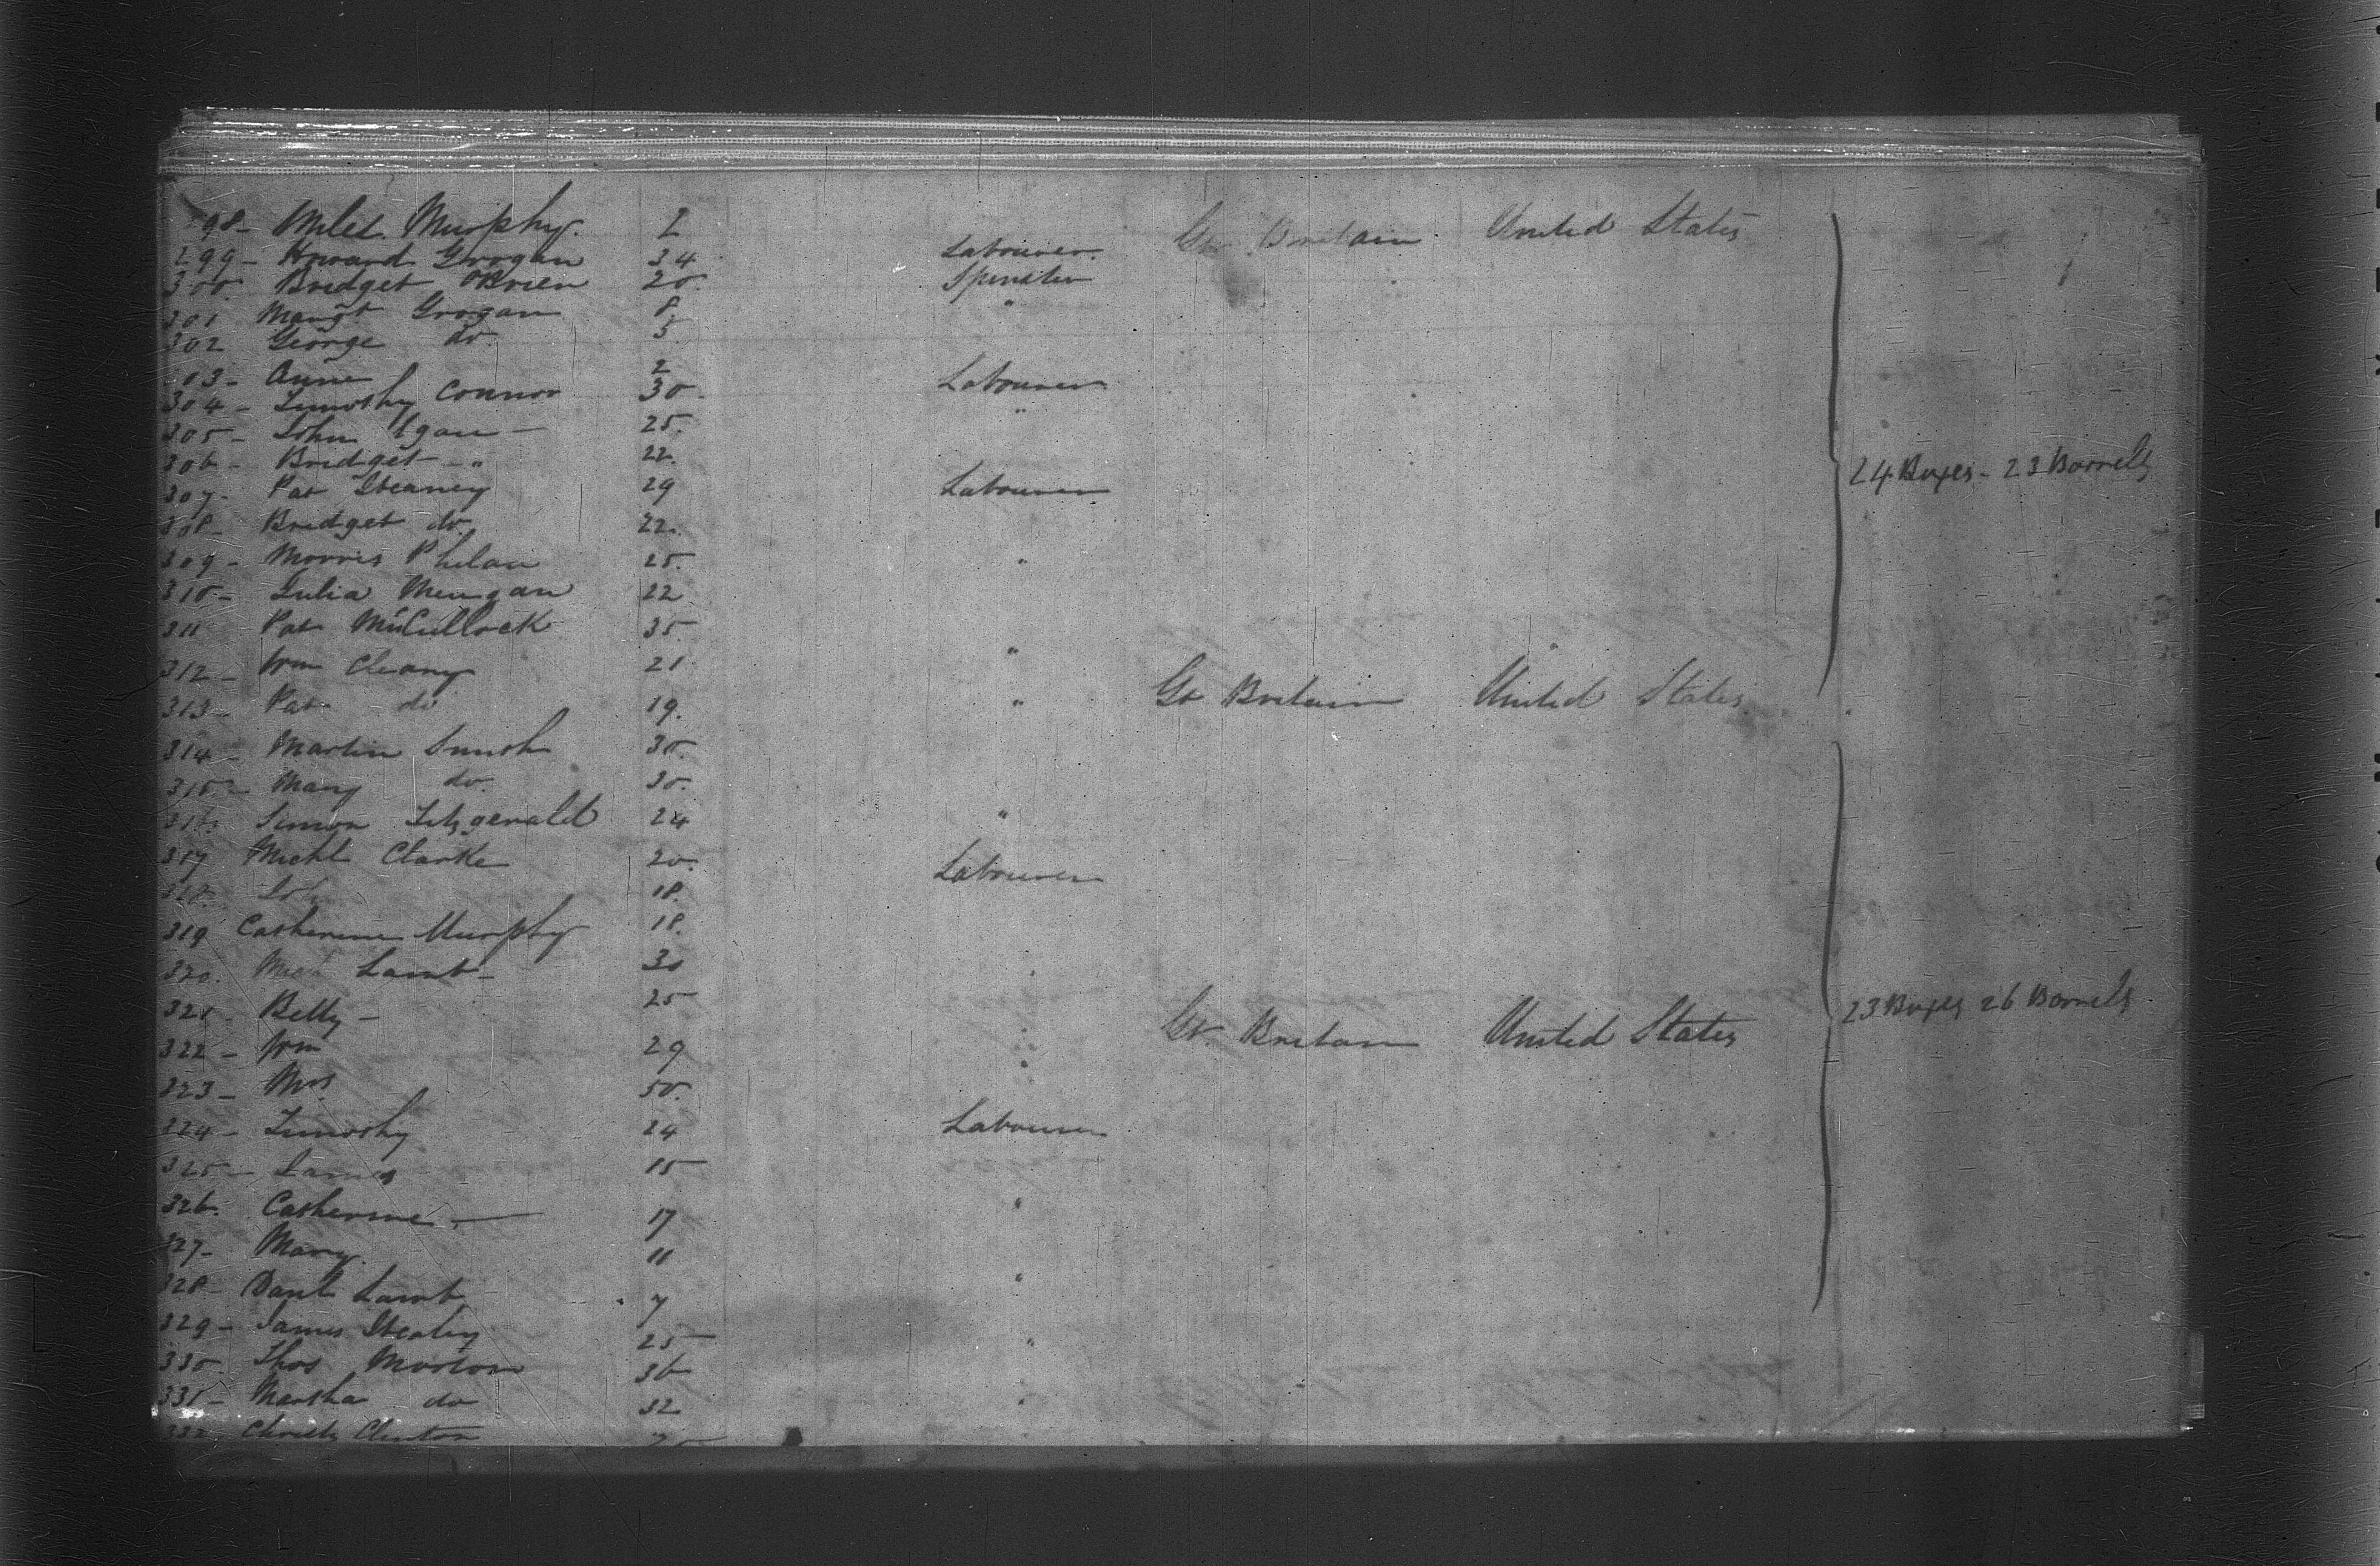 298- Miles Murphy. 2 Gt Britain United States
299- Howard Grogan 34 Labourer.
300. Bridget OBrien 20. Spinster
301 Margt Grogan 8 "
302 George do 5.
303- Anne 2
304- Timothy Connor 30. Labourer
305- John Egan - 25. "
306- Bridget - " 22.
307- Pat 29 Labourer
24 Boxes - 23 Barrels
308- Bridget do. 22.
309- Morris Phelan 25. "
310- Julia 22
311 Pat McCullock 35 "
312- Wm Cleary 21
313- Pat do 19. " Gt Britain United States
314- Martin Smith 30.
315- Mary do. 30.
316. Simon Fitzgerald 24 "
317 Michl Clarke 20. Labourer
318. 18.
319 Catherine Murphy 18.
320. Mich Lamb - 30 "
321- Betty - 25
23 Boxes 26 Barrels
322- Wm 29 " Gt. Britain United States
323- Mrs 50.
324- Timothy 24 Labourer
325- James 15
326. Catherine - 17 "
327- Mary 11
328- Danl Lamb 7 "
329- James 25 "
330- Thos 36
331- Martha do 32 "
332- Clinton